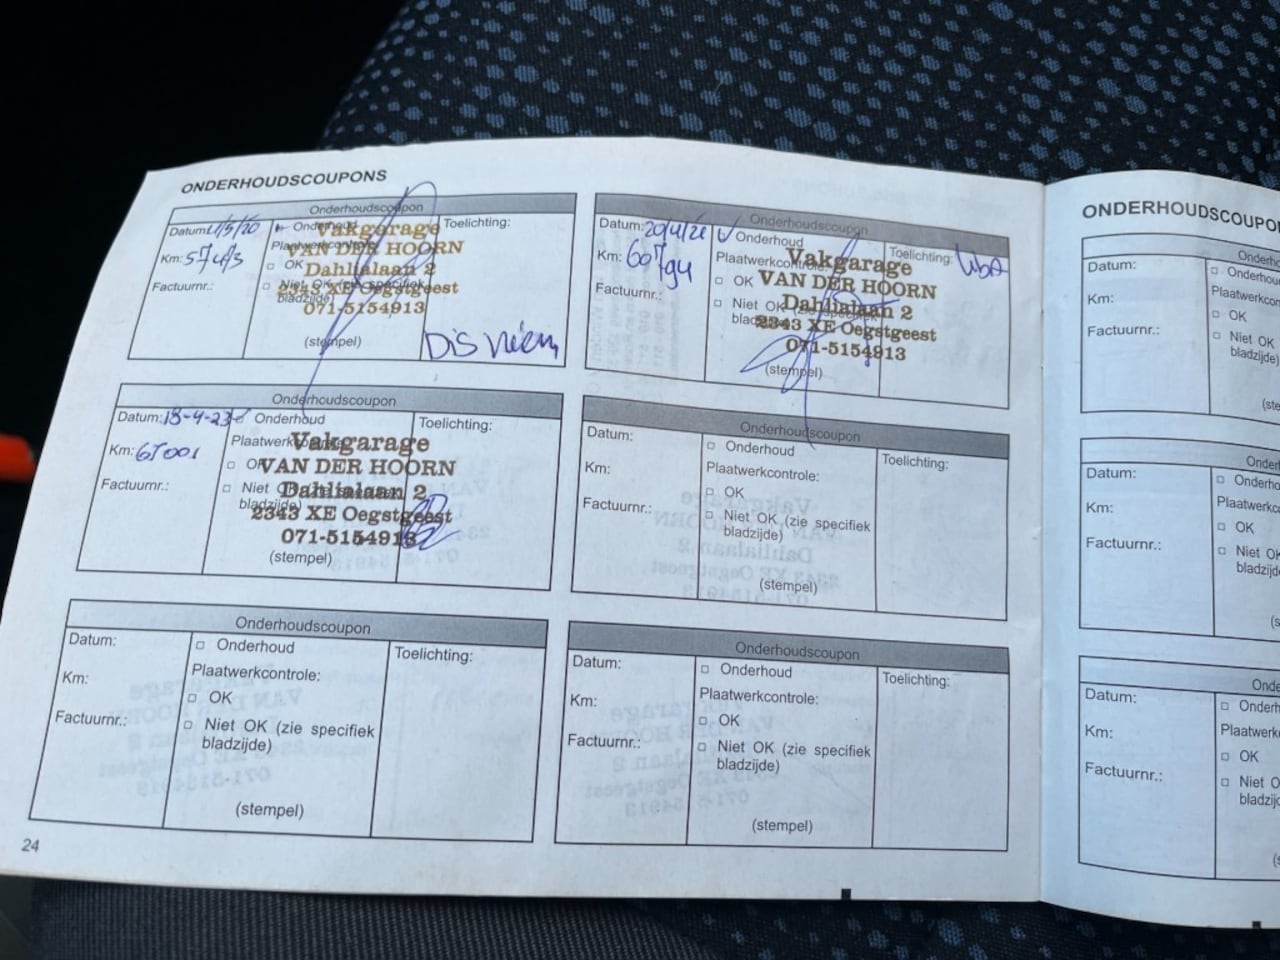 ONDERHOUDSCOUPONS
Onderhoudscoupon
Datum: 1/5/20
Onderhoud
Toelichting:
Km:
Plaatwerkcontrole:
OK
Factuurnr.:
Niet OK (zie specifiek
bladzijde)
Vakgarage
VAN DER HOORN
Dahlialaan 2
2343 XE Oegstgeest
071-5154913
(stempel)
Dis riem
Onderhoudscoupon
Datum: 20/4/21
Onderhoud
Toelichting:
Km:
Plaatwerkcontrole:
OK
Factuurnr.:
Niet OK (zie specifiek
bladzijde)
Vakgarage
VAN DER HOORN
Dahlialaan 2
2343 XE Oegstgeest
071-5154913
(stempel)
Onderhoudscoupon
Datum: 18-4-23
Onderhoud
Toelichting:
Km: 65001
Plaatwerkcontrole:
OK
Factuurnr.:
Niet OK
bladzijde)
Vakgarage
VAN DER HOORN
Dahlialaan 2
2343 XE Oegstgeest
071-5154913
(stempel)
Onderhoudscoupon
Datum:
Onderhoud
Toelichting:
Km:
Plaatwerkcontrole:
OK
Factuurnr.:
Niet OK (zie specifiek
bladzijde)
(stempel)
Onderhoudscoupon
Datum:
Onderhoud
Toelichting:
Km:
Plaatwerkcontrole:
OK
Factuurnr.:
Niet OK (zie specifiek
bladzijde)
(stempel)
Onderhoudscoupon
Datum:
Onderhoud
Toelichting:
Km:
Plaatwerkcontrole:
OK
Factuurnr.:
Niet OK (zie specifiek
bladzijde)
(stempel)
24
ONDERHOUDSCOUPON
Datum:
Onderhou
Km:
Plaatwerkcon
OK
Factuurnr.:
Niet OK
bladzijde)
Datum:
Onderho
Km:
Plaatwerko
OK
Factuurnr.:
Niet O
bladzijde
Datum:
Onderh
Km:
Plaatwerk
OK
Factuurnr.:
Niet O
bladzij